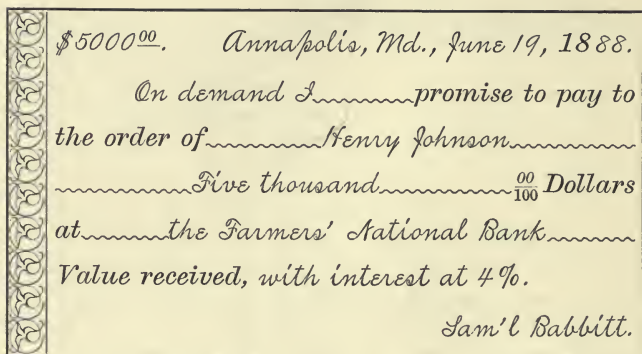 $5000 00. Annapolis, Md., June 19, 1888.
On demand I promise to pay to
the order of Henry Johnson
Five thousand 00/100 Dollars
at the Farmers' National Bank
Value received, with interest at 4%.
Sam'l Babbitt.